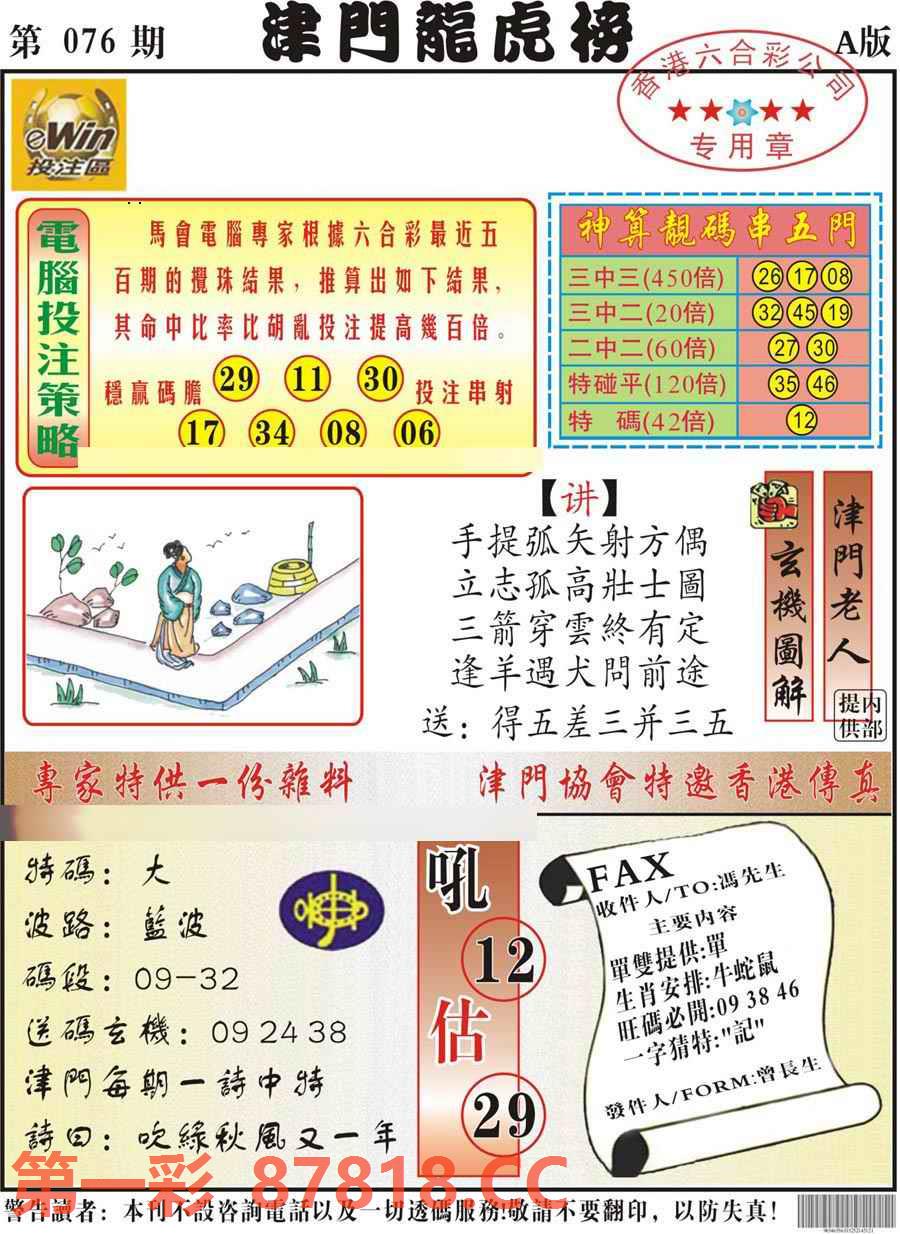 第 076 期
津門龍虎榜
A版
香港六合彩公司
专用章
eWin
投注區
電腦投注策略
馬會電腦專家根據六合彩最近五
百期的攪珠結果，推算出如下結果，
其命中比率比胡亂投注提高幾百倍。
穩贏碼膽 29 11 30 投注串射
17 34 08 06
神算靚碼串五門
三中三(450倍) 26 17 08
三中二(20倍) 32 45 19
二中二(60倍) 27 30
特碰平(120倍) 35 46
特 碼(42倍) 12
【讲】
手提弧矢射方偶
立志孤高壯士圖
三箭穿雲終有定
逢羊遇犬問前途
送：得五差三并三五
玄機圖解
津門老人
内部提供
專家特供一份雜料
津門協會特邀香港傳真
特碼：大
波路：藍波
碼段：09-32
送碼玄機：09 24 38
津門每期一詩中特
詩曰：吹綠秋風又一年
吼
12
估
29
FAX
收件人/TO:馮先生
主要内容
單雙提供:單
生肖安排:牛蛇鼠
旺碼必開:09 38 46
一字猜特:"記"
發件人/FORM:曾長生
第一彩 87818.CC
警告讀者：本刊不設咨詢電話以及一切透碼服務!敬請不要翻印，以防失真！